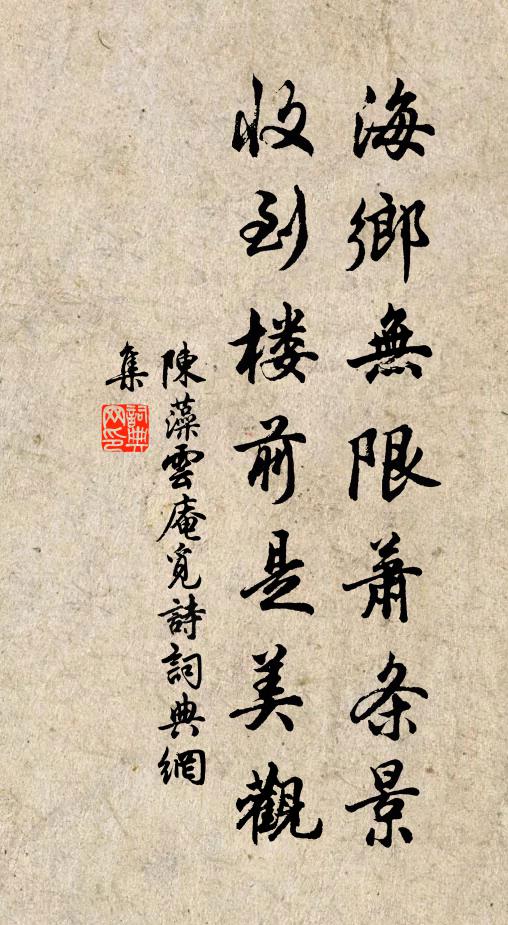 海鄉無限蕭条景
收到楼前是美觀
陳藻雲庵覓詩詞典網
集
詞典网印